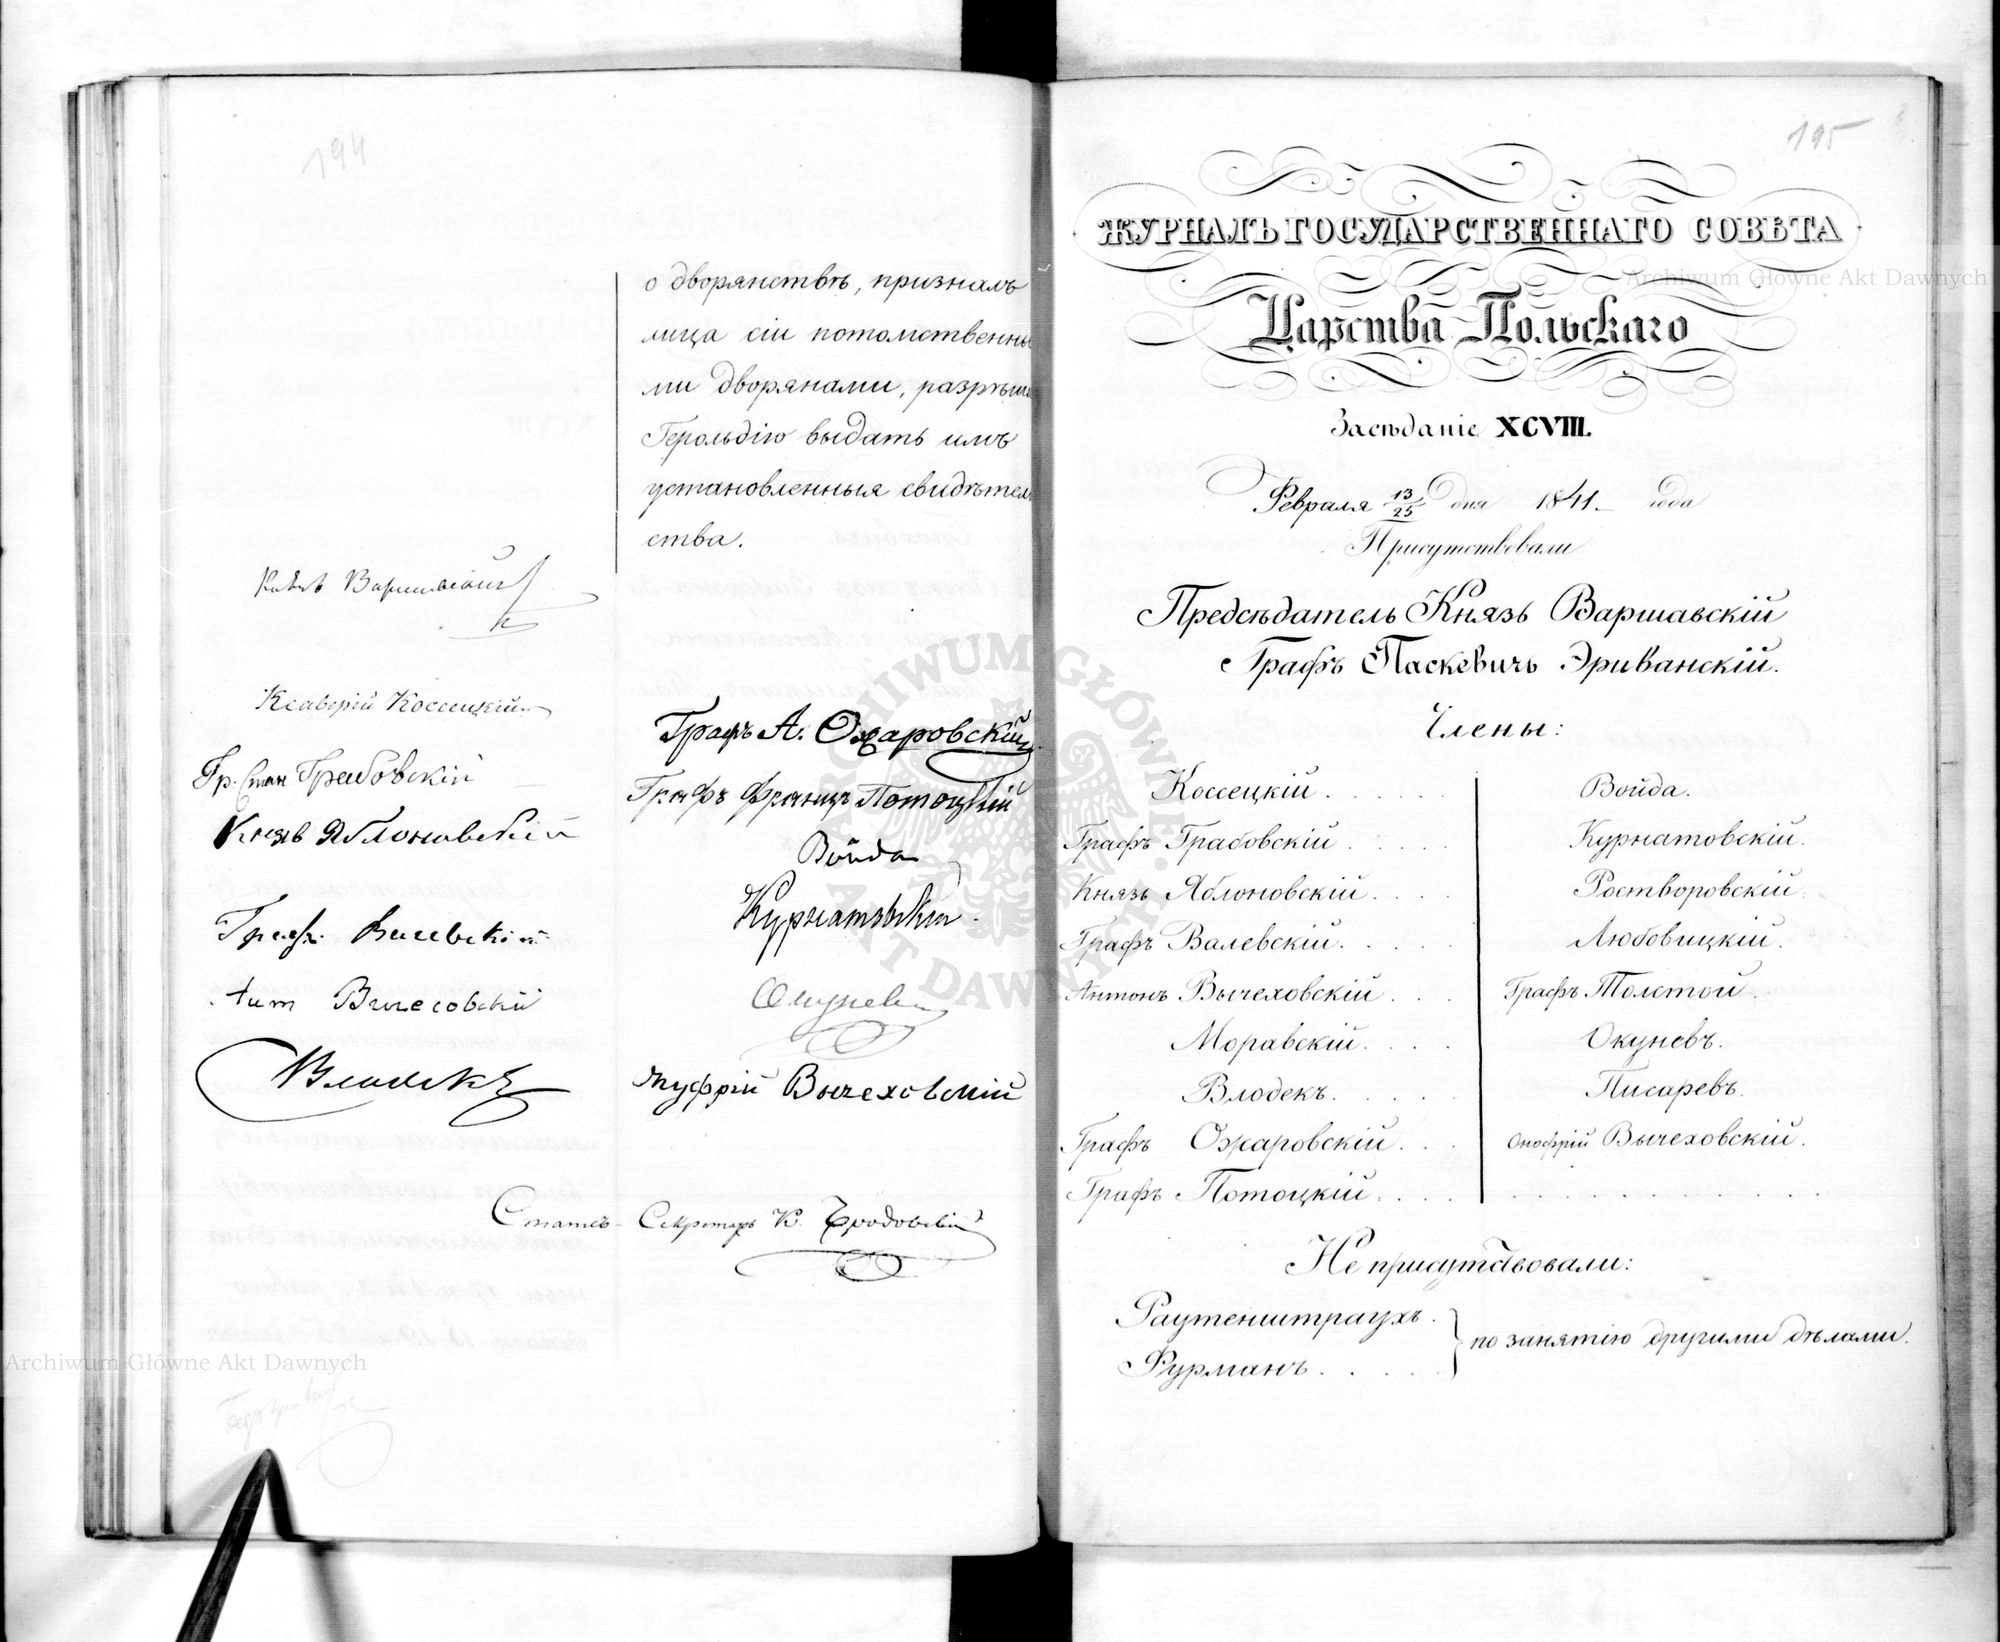 194
о дворянствѣ, призналъ
лица сіи потомственны
ми дворянами, разрѣши
Герольдію выдать имъ
установленныя свидѣтел
ства.
Князь Варшавскій
Ксаверій Коссецкій
Гр. Стан Грабовскій
Князь Яблоновскій
Графъ Валевскій
Ант Вычеховскій
Влодекъ
Графъ А. Ожаровскій
Графъ Францъ Потоцкій
Войда
Курнатовскій
Окуневъ
Онуфрій Вычеховскій
Статсъ-Секретарь К.
195
ЖУРНАЛЪ ГОСУДАРСТВЕННАГО СОВѢТА
Царства Польскаго
Засѣданіе XCVIII.
Февраля 13/25 дня 1841. года
Присутствовали
Предсѣдатель Князь Варшавскій
Графъ Паскевичъ Эриванскій.
Члены:
Коссецкій.
Графъ Грабовскій
Князь Яблоновскій.
Графъ Валевскій.
Антонъ Вычеховскій
Моравскій.
Влодекъ.
Графъ Ожаровскій.
Графъ Потоцкій.
Войда.
Курнатовскій.
Ростворовскій.
Любовицкій.
Графъ Толстой.
Окуневъ.
Писаревъ.
Онофрій Вычеховскій.
Не присутствовали:
Раутенштраухъ.
Фурманъ.
по занятію другими дѣлами.
Archiwum Główne Akt Dawnych
Archiwum Główne Akt Dawnych
ARCHIWUM GŁÓWNE AKT DAWNYCH